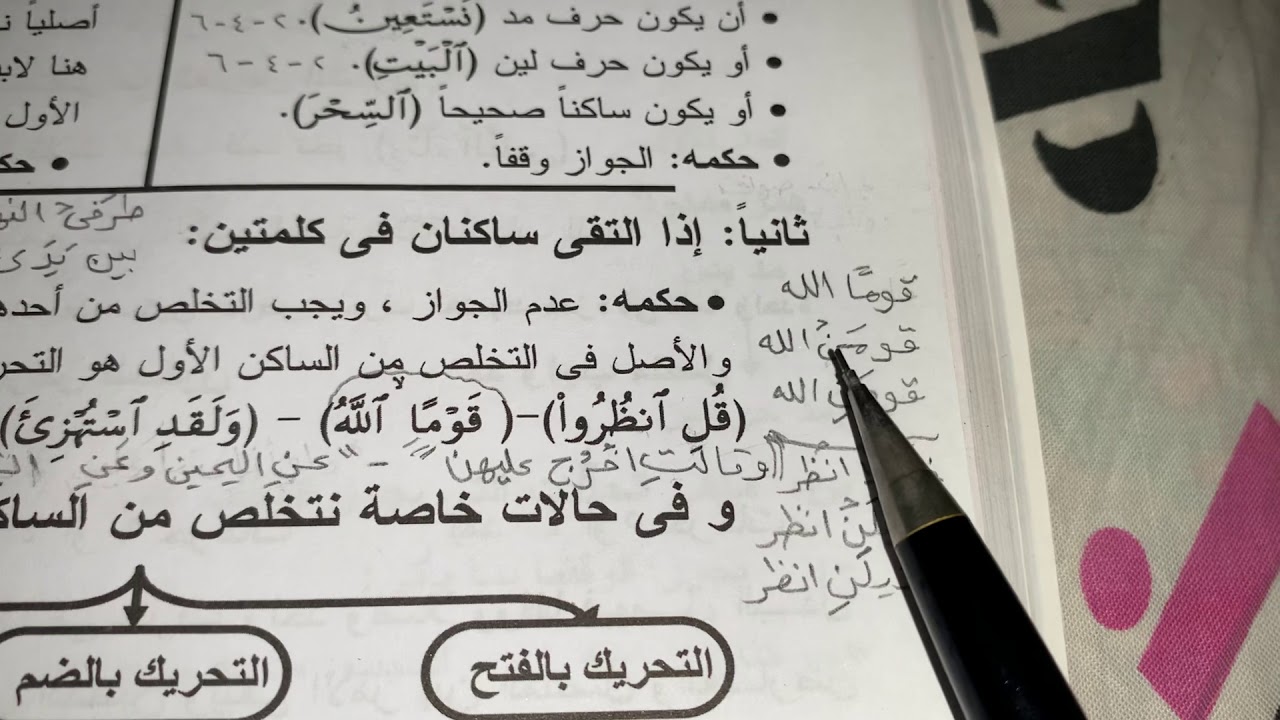 أن يكون حرف مد (نَسْتَعِينُ). ٢-٤-٦
أو يكون حرف لين (ٱلْبَيْتِ). ٢-٤-٦
أو يكون ساكناً صحيحاً (ٱلسِّحْرَ).
حكمه: الجواز وقفاً.
أصلياً
هنا لابد
الأول
ثانياً: إذا التقى ساكنان فى كلمتين:
بين يَدَى
حكمه: عدم الجواز ، ويجب التخلص من
والأصل فى التخلص من الساكن الأول هو
(قُلِ ٱنظُرُوا۟) - (قَوْمًا ٱللَّهُ) - (وَلَقَدِ ٱسْتُهْزِئَ)
وقالتِ اخْرُج عليهن - "عنِ اليمين وعنِ
و فى حالات خاصة نتخلص من
التحريك بالفتح
التحريك بالضم
قومًا الله
قومَنْ الله
قومَنِ الله
انظر
انظر
انظر